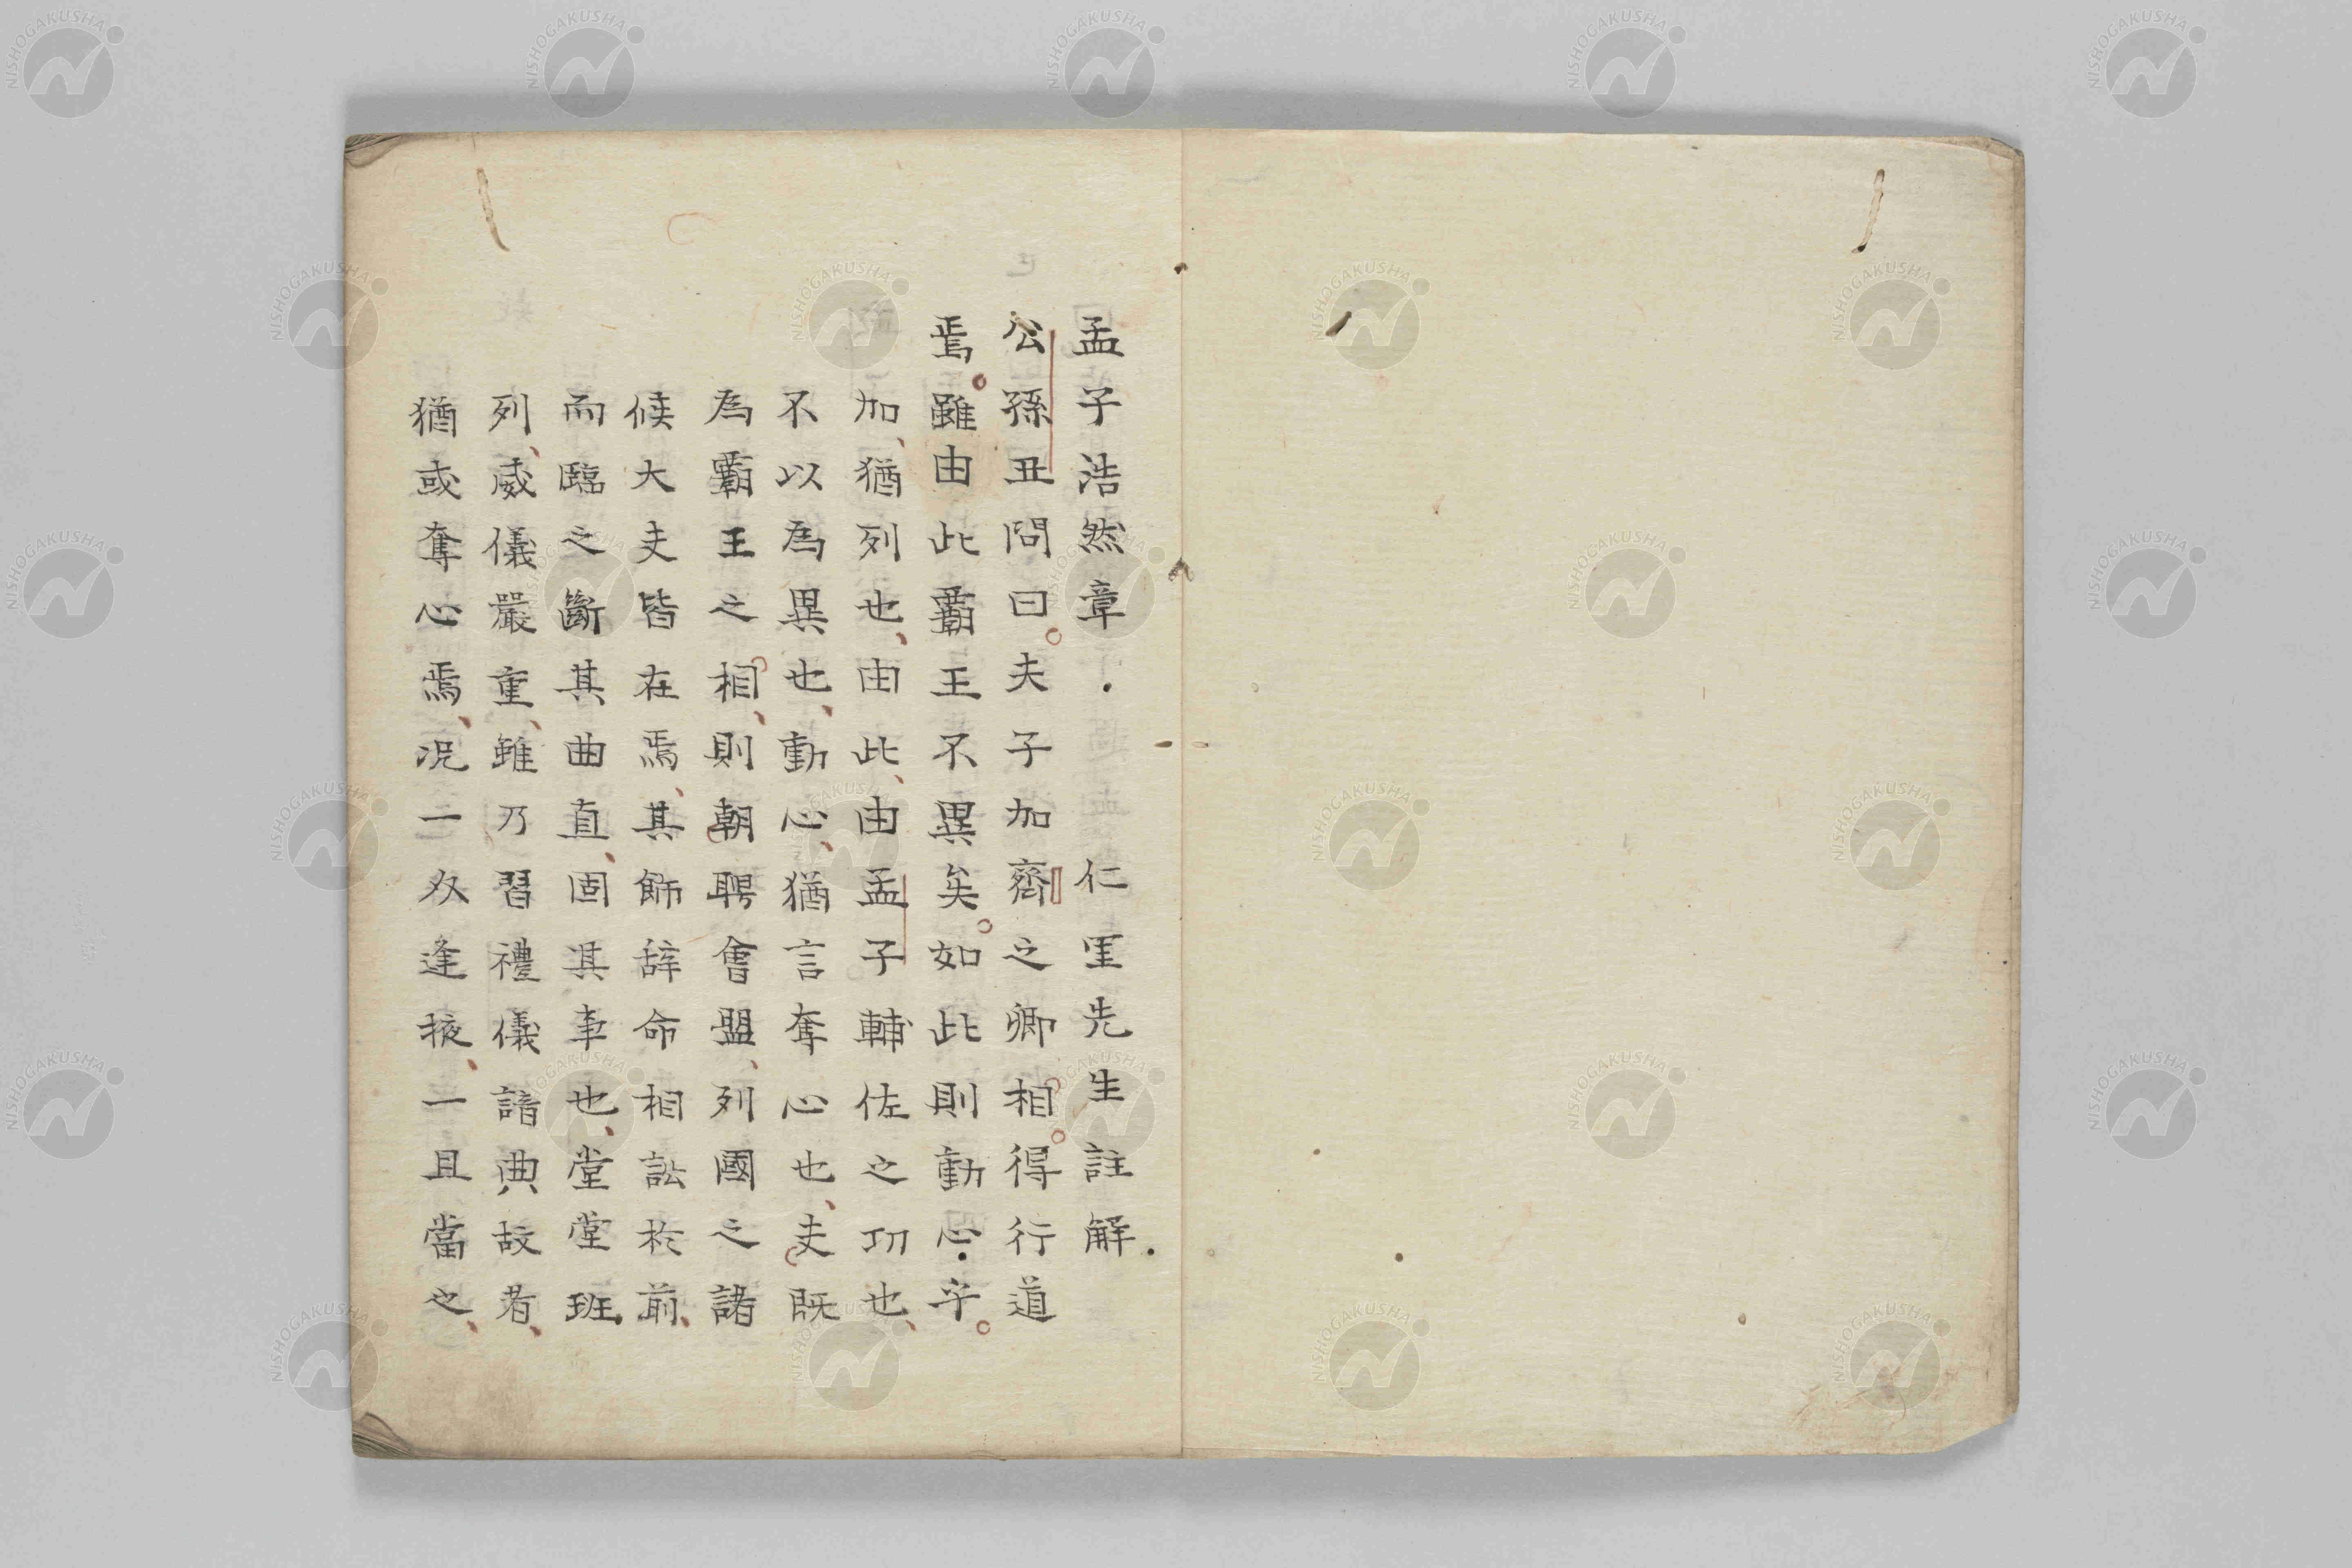 孟子浩然章・仁里先生註解.
公孫丑問曰。夫子加齊之卿相。得行道
焉。雖由此霸王不異矣。如此則動心・乎。
加、猶列也、由此、由孟子輔佐之功也、
不以爲異也、動心、猶言奪心也、夫既
爲霸王之相、則朝聘會盟、列國之諸
候大夫皆在焉、其飾辞命相訟於前、
而臨之斷其曲直、固其事也、堂堂班
列、威儀嚴重、雖乃習禮儀諳典故者、
猶或奪心焉、况一夂逢掖、一旦當之、
NISHOGAKUSHA